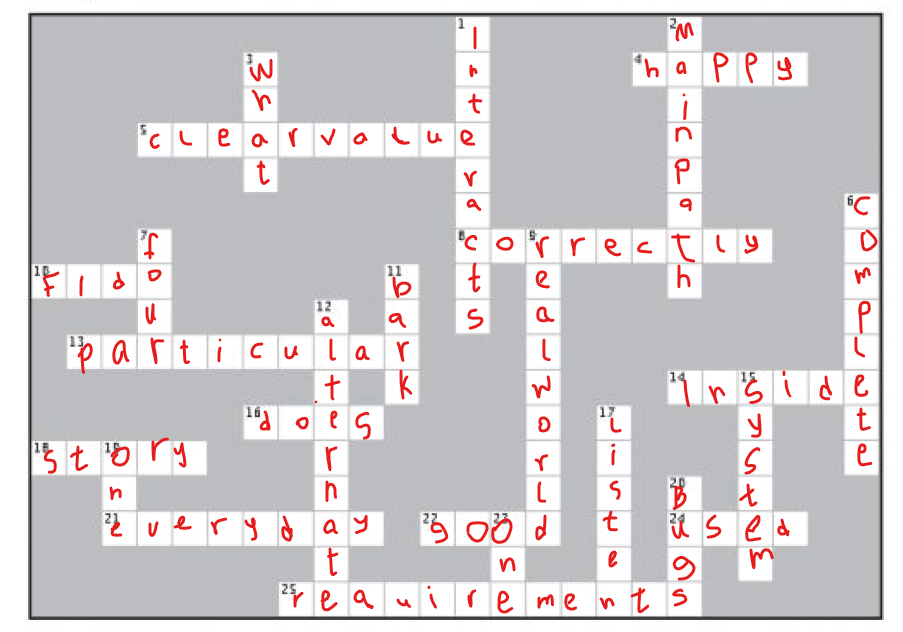 1 Interacts
2 Mainpath
3 What
4 happy
5 clearvalue
6 Complete
7 four
8 correctly
9 realworld
10 Fido
11 bark
12 alternate
13 particular
14 Inside
15 System
16 does
17 Listen
18 Story
19 one
20 Bugs
21 everyday
22 good
23 one
24 used
25 requirements